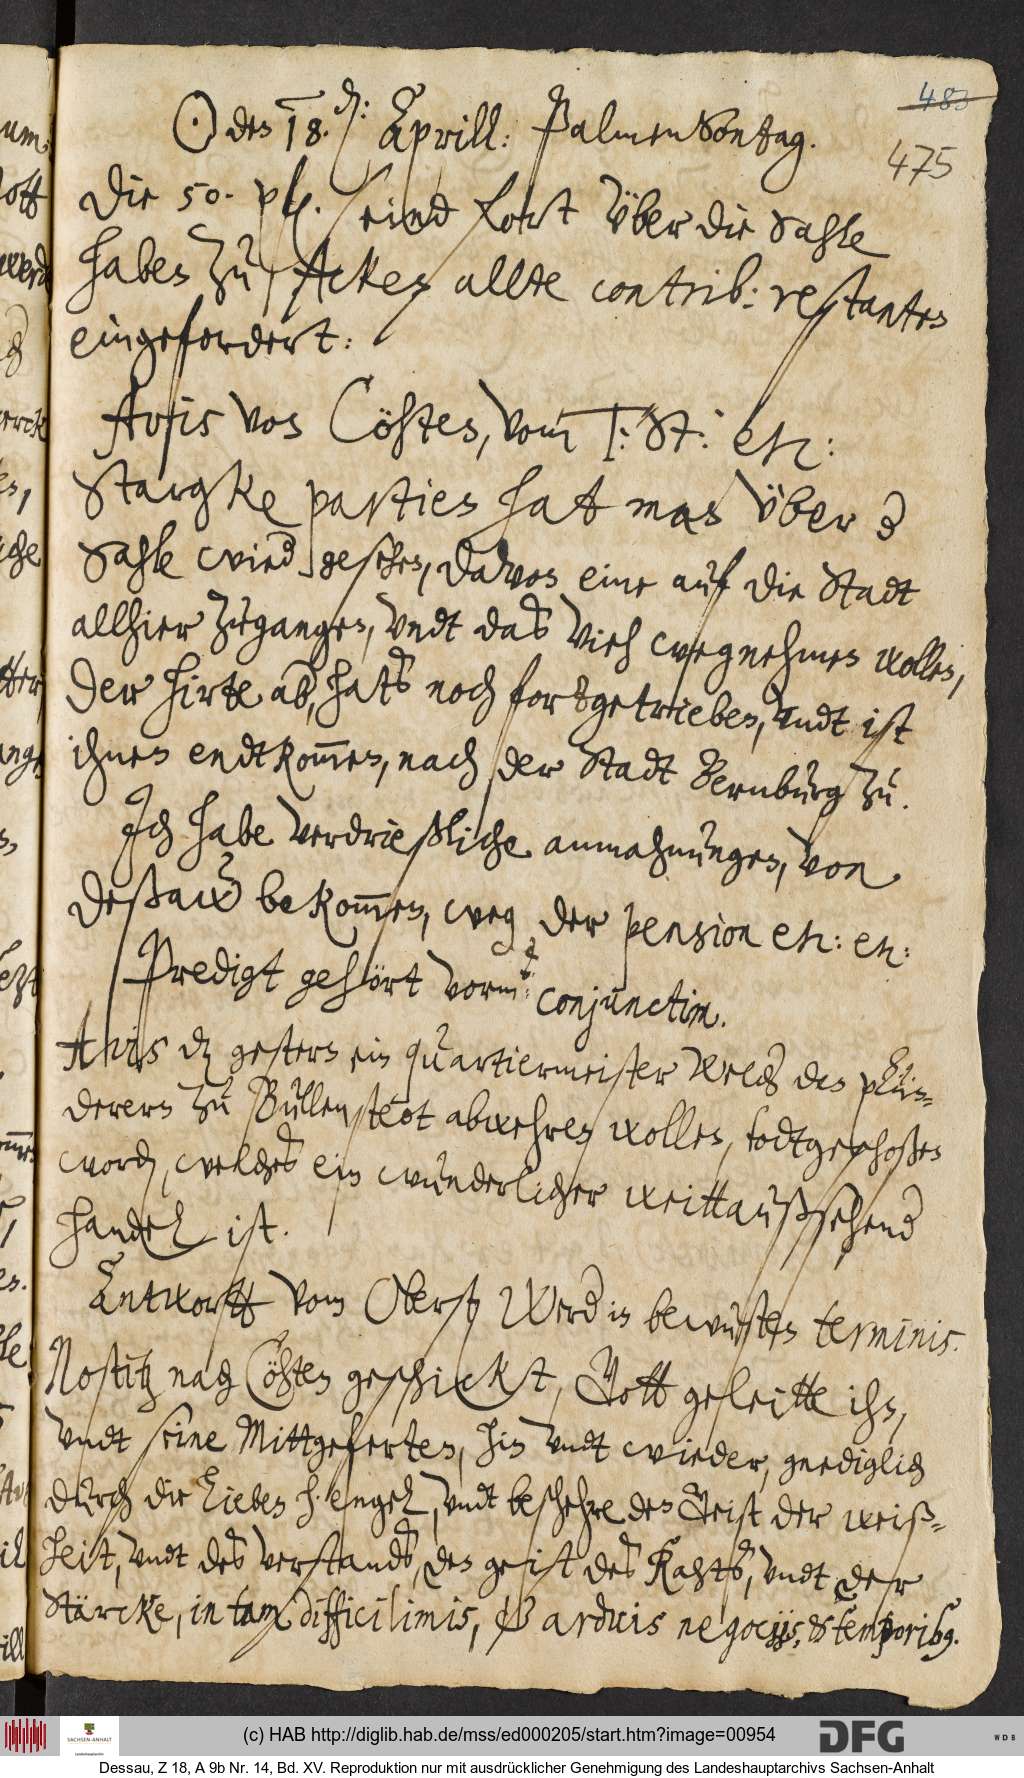 483
475
☉ den 18. d: Aprill: Palmen Sontag.
Die 50. pf. seind fort über die Sahle
haben zu Acken allte contrib: restanten
eingefordert:
Avis von Cöhten, vom T: St: etc:
Starcke partien hat man über d
Sahle wied gesehen, davon eine auf die Stadt
allhier zugangen, undt das Vieh wegnehmen wollen,
Der hirte ab, hats noch fortgetrieben, undt ist
ihnen endtkom̄en, nach der Stadt Bernburg zu.
Ich habe verdrießliche anmahnungen, von
Deßaw bekom̄en, weg der pension etc: etc:
Predigt gehört vorm: conjunctim.
Avis dz gestern ein quartiermeister welch den plün-
derern zu Bullenstedt abwehren wollen, todtgeschoßen
word, welches ein wunderlicher weittaußsehend
handel ist.
Antwortt vom Oberst Werd in bewusten terminis.
Nostitz nach Cöhten geschickt, Gott geleitte ihn,
undt seine Mittgeferten, hin undt wieder, gnediglich
durch die lieben h. engel, undt beschehre den Geist der weiß-
heit, undt des verstands, den geist des Rahts, undt der
Stärcke, in tam difficilimis, & arduis negociis, & temporibus.
(c) HAB http://diglib.hab.de/mss/ed000205/start.htm?image=00954
SACHSEN-ANHALT
Landeshauptarchiv
DFG
WDB
Dessau, Z 18, A 9b Nr. 14, Bd. XV. Reproduktion nur mit ausdrücklicher Genehmigung des Landeshauptarchivs Sachsen-Anhalt